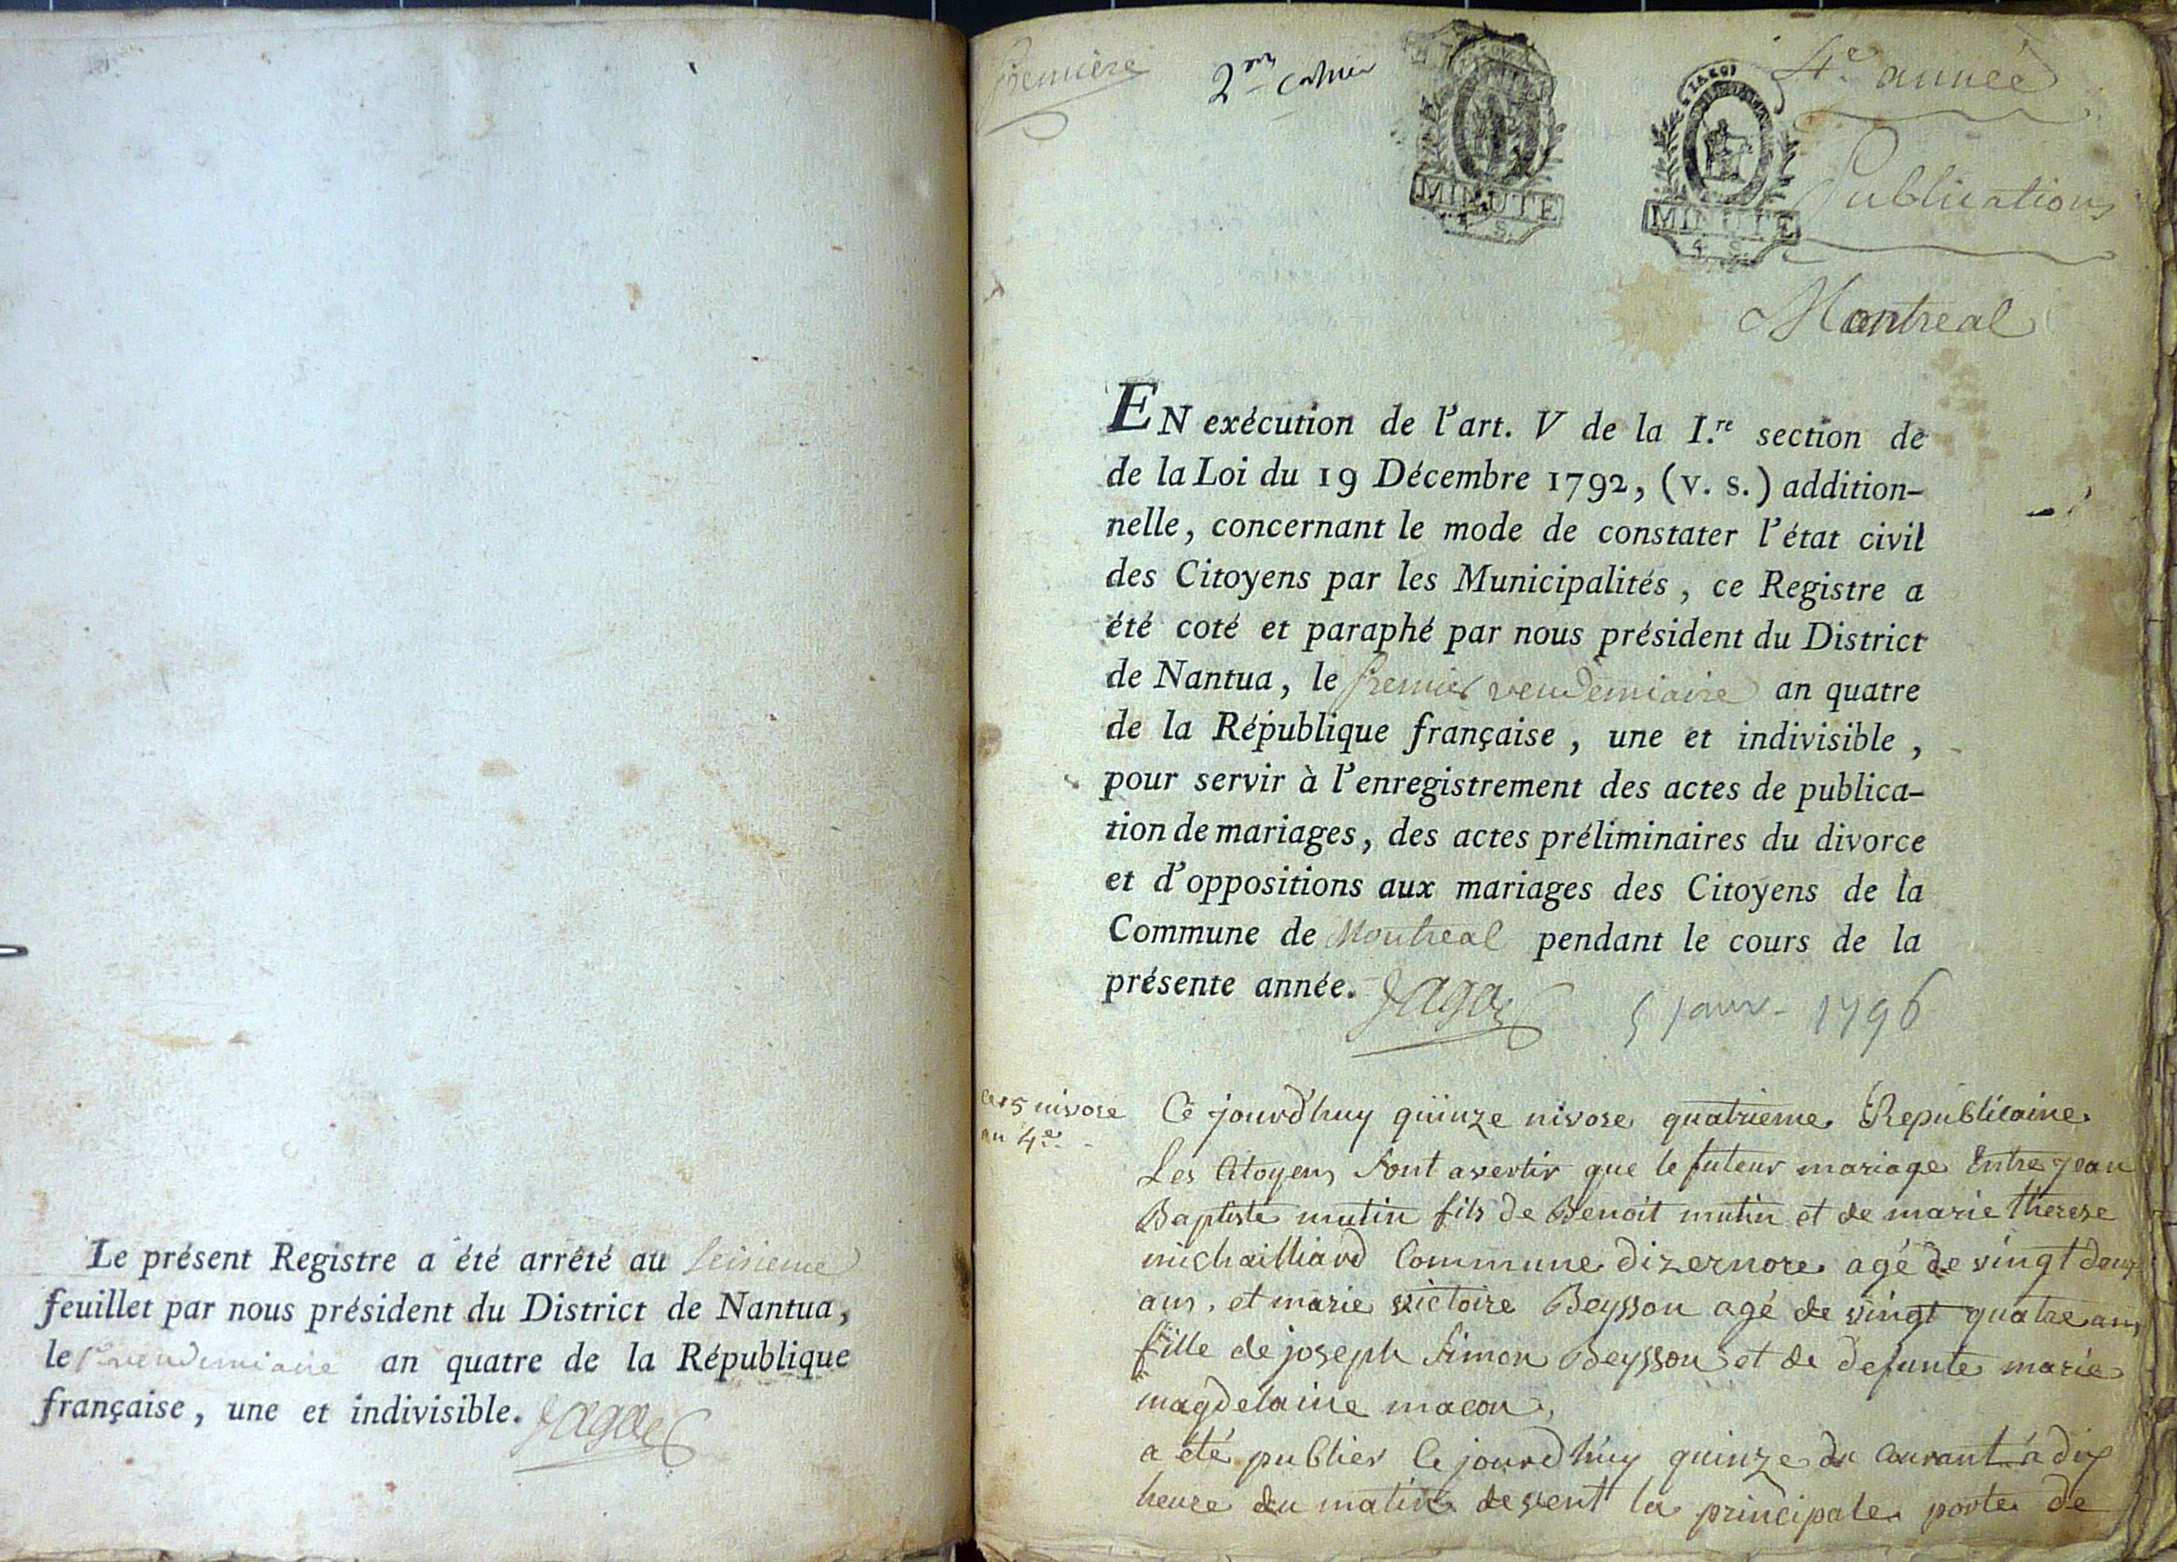 Le présent Registre a été arrêté au seizieme
feuillet par nous président du District de Nantua,
le 1er vendemiaire an quatre de la République
française, une et indivisible.
Premiere
2me cahier
4e année
Publications
MINUTE
4 S.
MINUTE
4 S.
Montreal
EN exécution de l'art. V de la I.re section de
de la Loi du 19 Décembre 1792, (v. s.) addition-
nelle, concernant le mode de constater l'état civil
des Citoyens par les Municipalités, ce Registre a
été coté et paraphé par nous président du District
de Nantua, le premier vendemiaire an quatre
de la République française, une et indivisible,
pour servir à l'enregistrement des actes de publica-
tion de mariages, des actes préliminaires du divorce
et d'oppositions aux mariages des Citoyens de la
Commune de Montreal pendant le cours de la
présente année.
5 janv. 1796
ce 15 nivose
an 4e
Ce jourd'huy quinze nivose quatrieme Republicaine
Les Citoyens sont avertir que le futeur mariage Entre jean
Baptiste mutin fils de Benoit mutin et de marie therese
michailliard Commune dizernore agé de vingt deux
ans, et marie victoire Beysson agé de vingt quatre ans
fille de joseph Simon Beysson et de defunte marie
magdelaine macon,
a été publier Ce jourd'huy quinze du Courant à dix
heure du matin devent la principale porte de